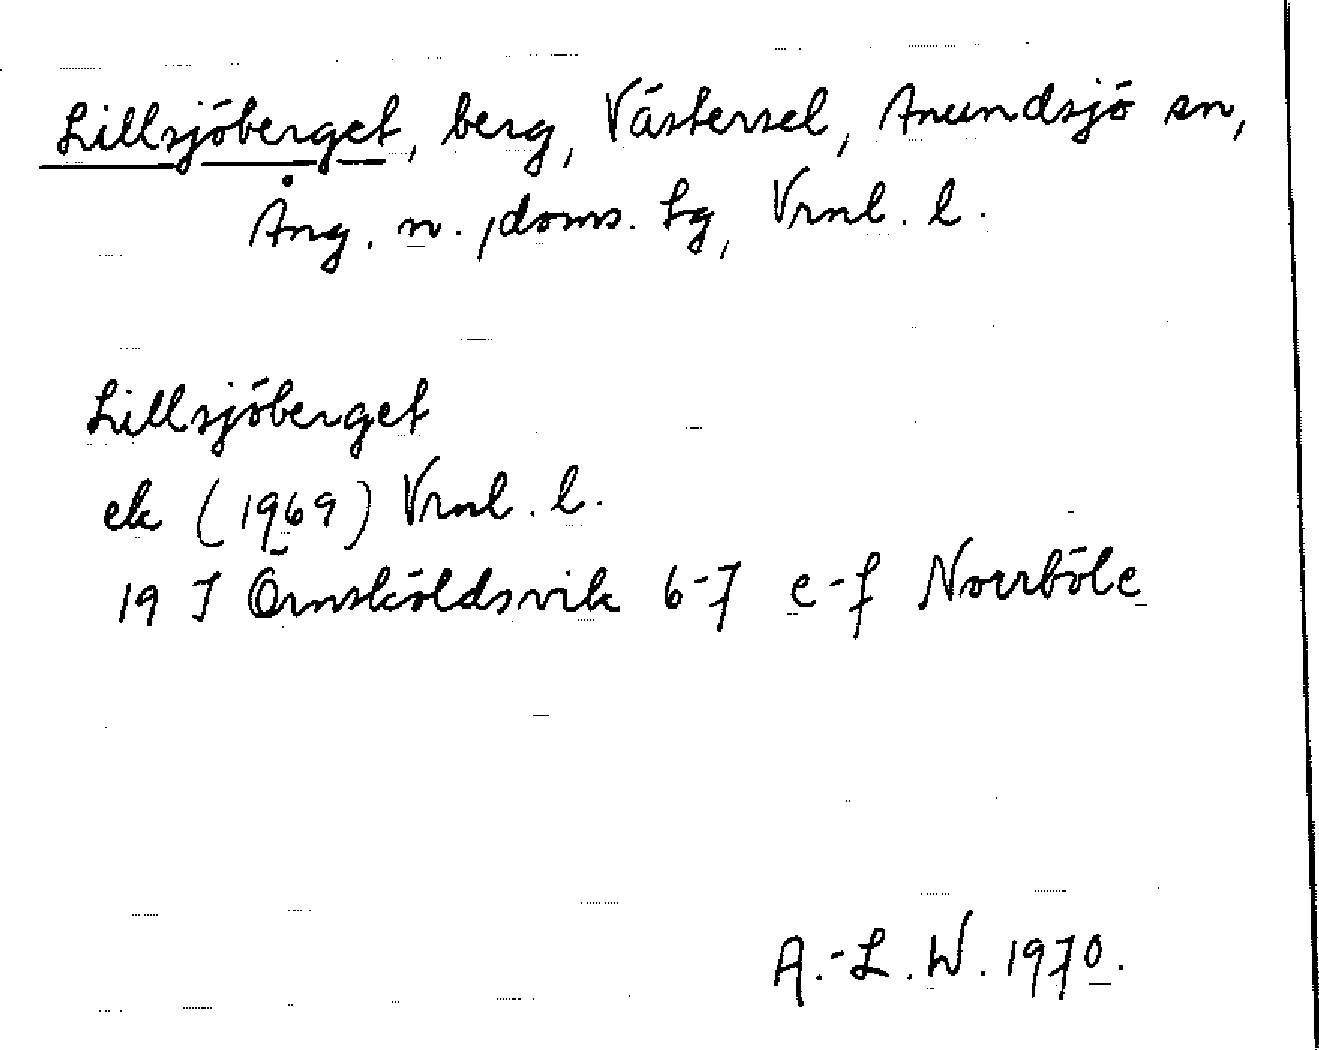 Lillsjöberget, berg, Västersel, Anundsjö sn,
Ång. n., doms. Lg, Vrnl. l.
Lillsjöberget
ek (1969) Vrnl. l.
19 J Örnsköldsvik 6-7 e-f Norrböle
A.-L. W. 1970.